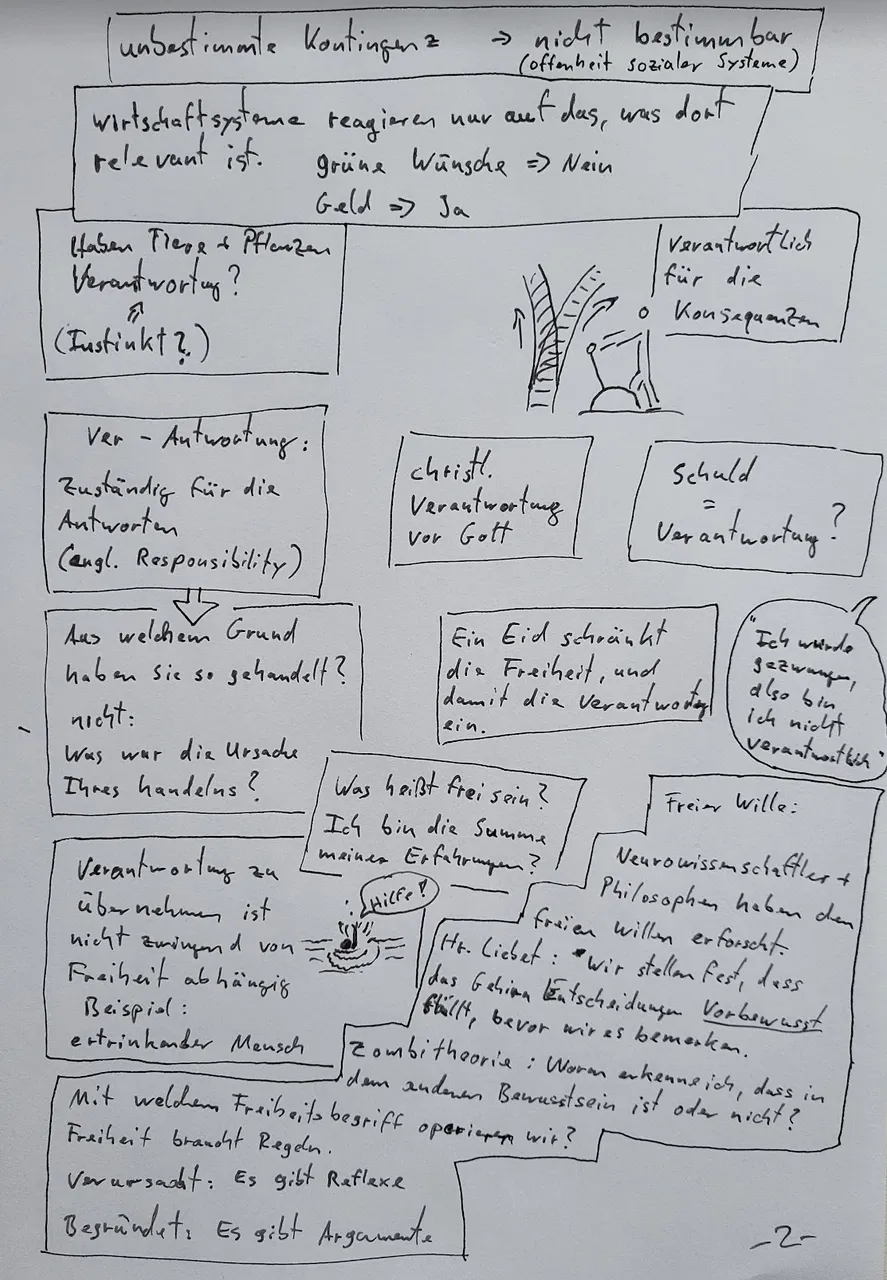 unbestimmte Kontingenz → nicht bestimmbar
(offenheit sozialer Systeme)
Wirtschaftsysteme reagieren nur auf das, was dort
relevant ist. grüne Wünsche => Nein
Geld => Ja
Haben Tiere + Pflanzen
Verantwortung?
(Instinkt?)
Verantwortlich
für die
Konsequenzen
Ver-Antwortung:
Zuständig für die
Antworten
(engl. Responsibility)
christl.
Verantwortung
vor Gott
Schuld
=
Verantwortung?
Aus welchem Grund
haben Sie so gehandelt?
nicht:
Was war die Ursache
Ihres handelns?
Ein Eid schränkt
die Freiheit, und
damit die Verantwortung
ein.
"Ich wurde
gezwungen,
also bin
ich nicht
verantwortlich"
Was heißt frei sein?
Ich bin die Summe
meiner Erfahrungen?
Verantwortung zu
übernehmen ist
nicht zwingend von
Freiheit abhängig
Beispiel:
ertrinkender Mensch
Hilfe!
Freier Wille:
Neurowissenschaftler +
Philosophen haben den
freien willen erforscht.
Hr. Liebet: "Wir stellen fest, dass
das Gehirn Entscheidungen Vorbewusst
fällt, bevor wir es bemerken.
Zombitheorie: Woran erkenne ich, dass in
dem anderen Bewusstsein ist oder nicht?
Mit welchem Freiheitsbegriff operieren wir?
Freiheit braucht Regeln.
Verursacht: Es gibt Reflexe
Begründet: Es gibt Argumente
-2-